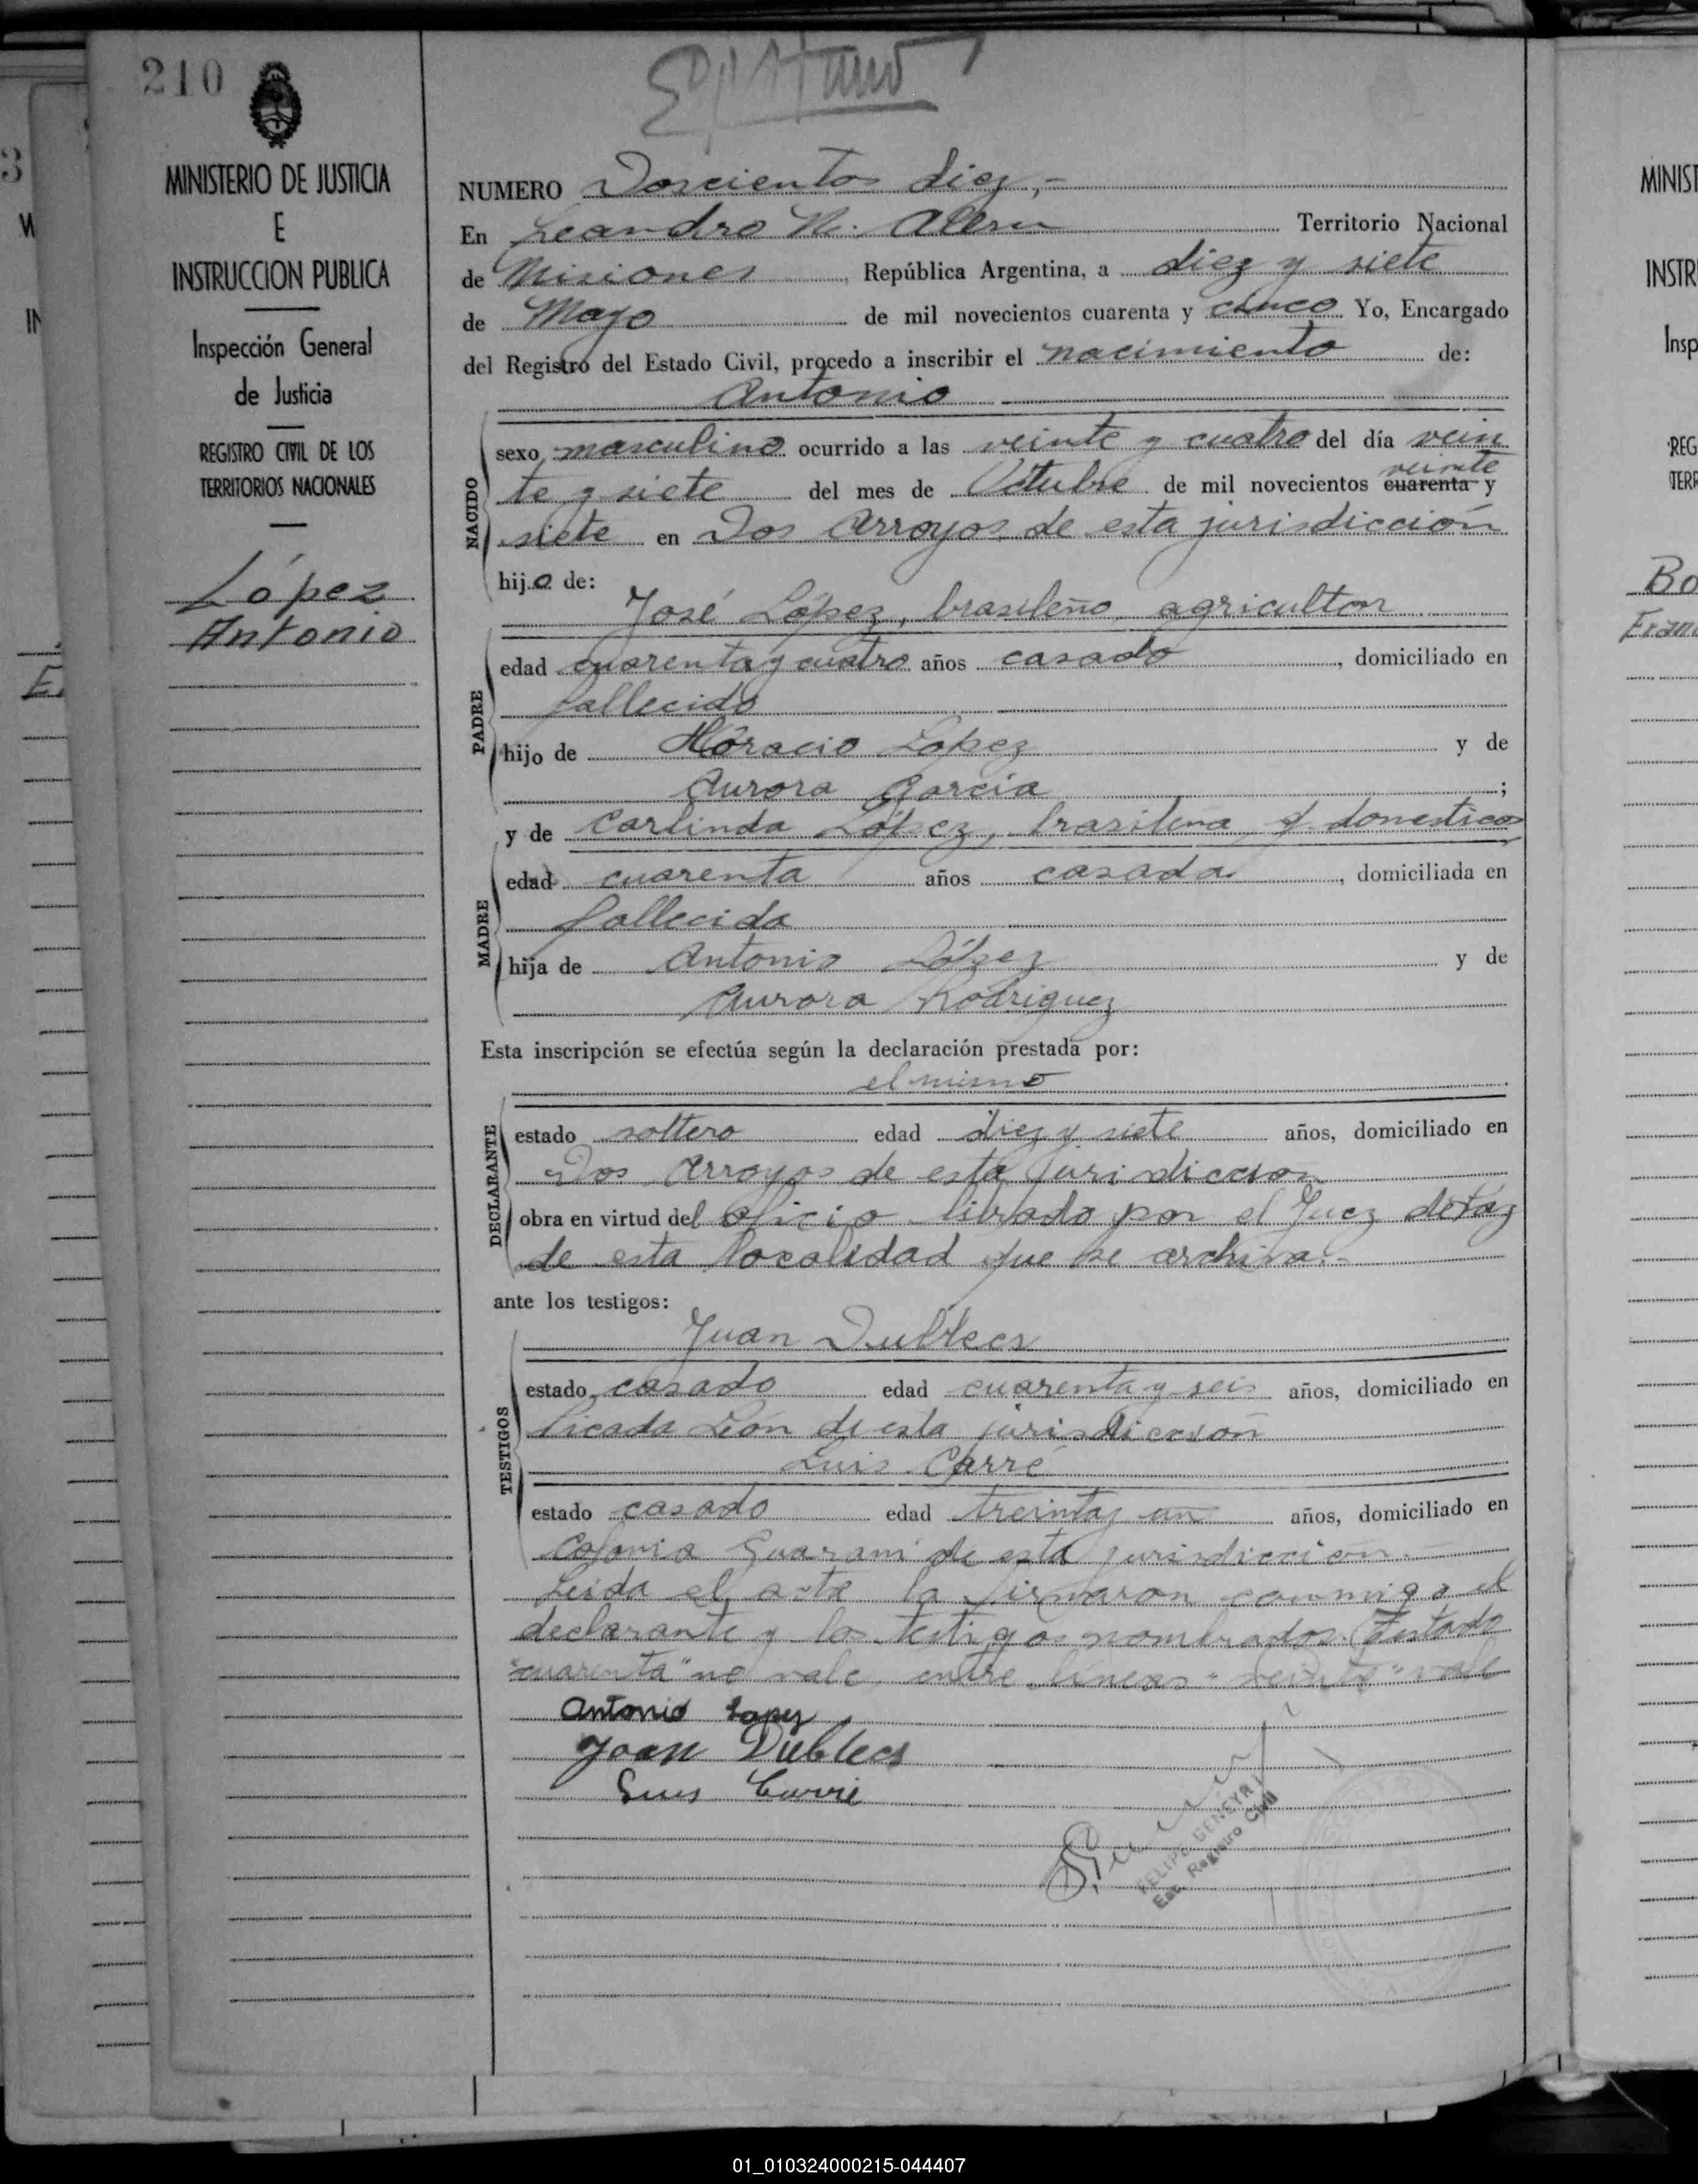 210
MINISTERIO DE JUSTICIA
E
INSTRUCCION PUBLICA
Inspección General
de Justicia
REGISTRO CIVIL DE LOS
TERRITORIOS NACIONALES
López
Antonio
NUMERO Doscientos diez,-
En Leandro N. Alem Territorio Nacional
de Misiones, República Argentina, a diez y siete
de Mayo de mil novecientos cuarenta y cinco Yo, Encargado
del Registro del Estado Civil, procedo a inscribir el nacimiento de:
Antonio
NACIDO
sexo masculino ocurrido a las veinte y cuatro del día vein
veinte
te y siete del mes de Octubre de mil novecientos cuarenta y
siete en Dos Arroyos de esta jurisdicción
hijo de:
José López, brasileño, agricultor
PADRE
edad cuarenta y cuatro años casado, domiciliado en
fallecido
hijo de Horacio López y de
Aurora García;
y de Carlinda López, brasileña, q. domesticos
MADRE
edad cuarenta años casada, domiciliada en
fallecida
hija de Antonio López y de
Aurora Rodriguez
Esta inscripción se efectúa según la declaración prestada por:
el mismo
DECLARANTE
estado soltero edad diez y siete años, domiciliado en
Dos Arroyos de esta juridiccion
obra en virtud del oficio librado por el Juez de Paz
de esta localidad que se archiva.-
ante los testigos:
Juan Dublecs
TESTIGOS
estado casado edad cuarenta y seis años, domiciliado en
Picada León de esta jurisdiccion
Luis Carré
estado casado edad treinta y un años, domiciliado en
Colonia Guaraní de esta jurisdiccion.-
Leida el acta la firmaron conmigo el
declarante y los testigos nombrados. Testado
"cuarenta" no vale, entre lineas "veinte" vale
Antonio Lopez
Joan Dublecs
Luis Carré
FELIPE GENEYRI
Enc. Registro Civil
MINIST
INSTR
Insp
REG
TERR
Bo
Fran
01_010324000215-044407